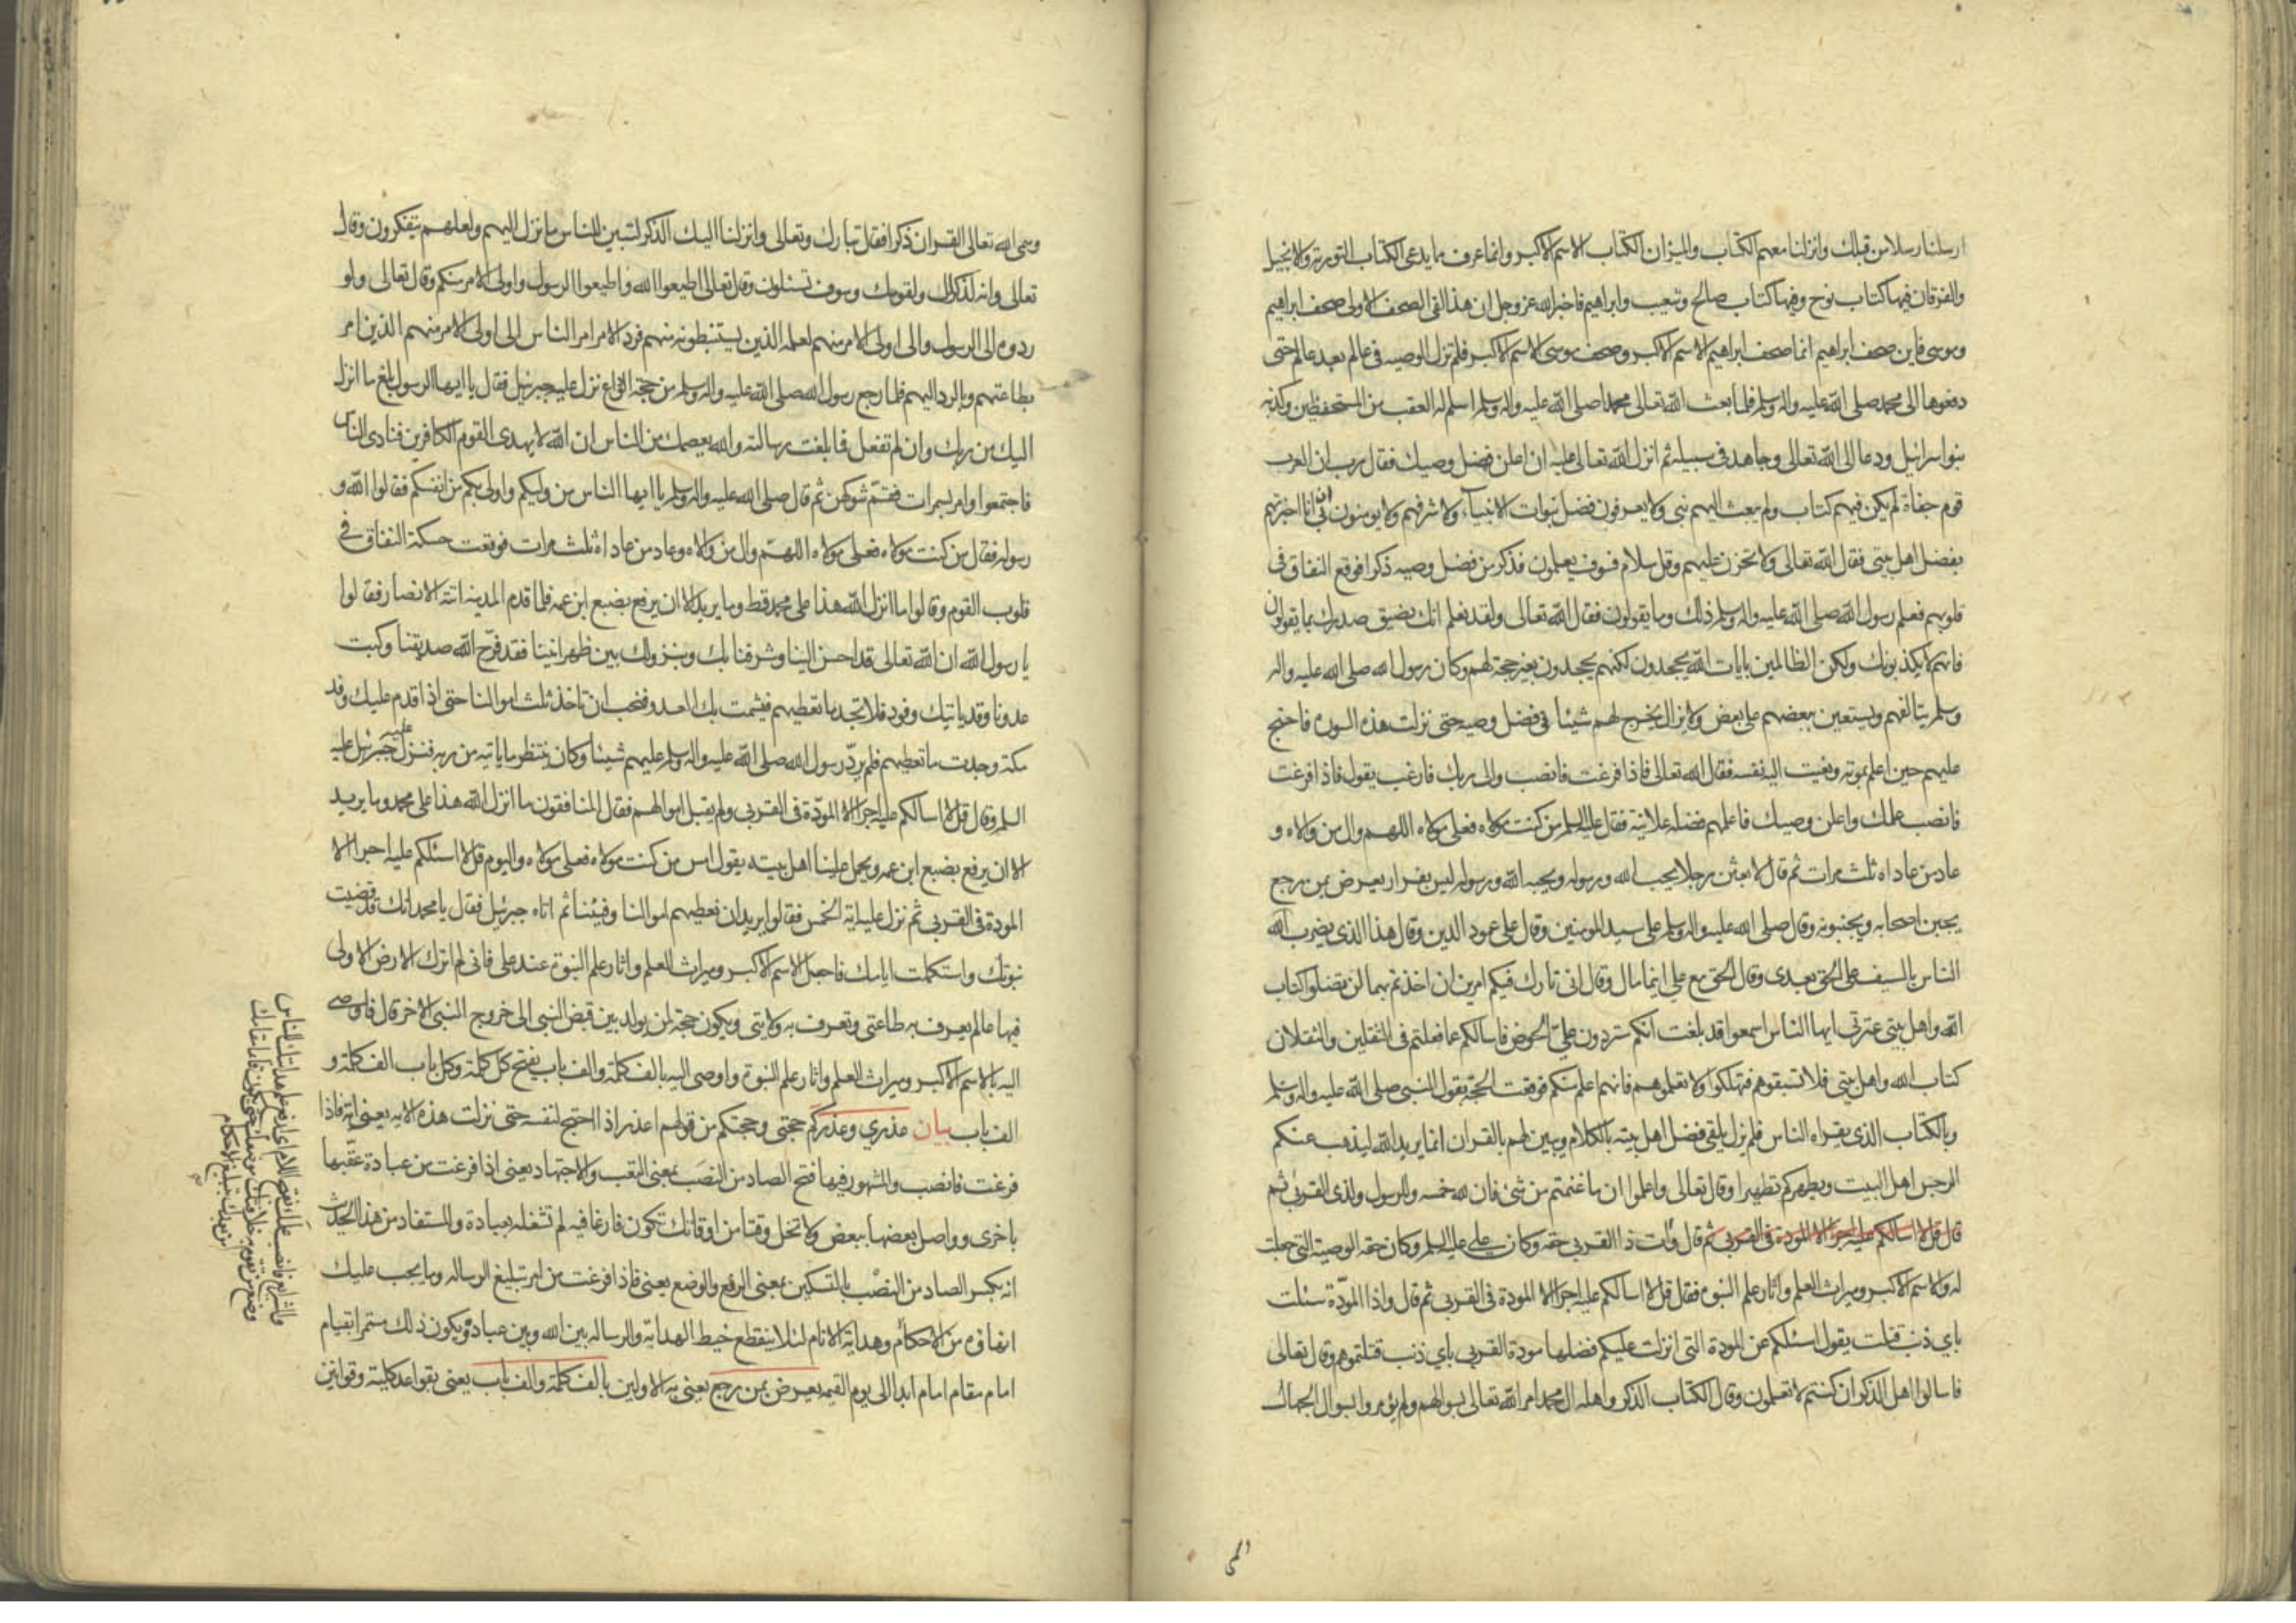 ارسلنا رسلا من قبلك وانزلنا معهم الكتاب والميزان الكتاب الاسم الاكبر وانما عرف مما يدعى الكتاب التورية والانجيل
والفرقان فيها كتاب نوح وفيها كتاب صالح وشعيب وابراهيم فاخبر الله عز وجل ان هذا لفى الصحف الاولى صحف ابراهيم
وموسى فاين صحف ابراهيم انما صحف ابراهيم الاسم الاكبر وصحف موسى الاسم الاكبر فلم تزل الوصيه فى عالم بعد عالم حتى
دفعوها الى محمد صلى الله عليه واله وسلم فلما بعث الله تعالى محمدا صلى الله عليه واله وسلم اسلم له العقب من المستحفظين وكذبه
بنوا اسرائيل ودعا الى الله تعالى وجاهد فى سبيله ثم انزل الله تعالى عليه ان اعلن فضل وصيك فقال رب ان العرب
قوم جفاة لم يكن فيهم كتاب ولم يبعث اليهم نبى ولا يعرفون فضل نبوات الانبياء ولا شرفهم ولا يومنون بى ان انا اخبرتهم
بفضل اهل بيتى فقال الله تعالى ولا تحزن عليهم وقل سلام فسوف يعلمون فذكر من فضل وصيه ذكرا فوقع النفاق فى
قلوبهم فعلم رسول الله صلى الله عليه واله وسلم ذلك وما يقولون فقال الله تعالى ولقد نعلم انك يضيق صدرك بما يقولون
فانهم لا يكذبونك ولكن الظالمين بايات الله يجحدون لكنهم يجحدون بغير حجة لهم وكان رسول الله صلى الله عليه واله
وسلم يتالفهم ويستعين ببعضهم على بعض ولا يزال يخرج لهم شيئا فى فضل وصيه حتى نزلت هذه السورة فاحتج
عليهم حين اعلم بموته ونعيت اليه نفسه فقال الله تعالى فاذا فرغت فانصب والى ربك فارغب يقول فاذا فرغت
فانصب علمك واعلن وصيك فاعلمهم فضله علانية فقال عليه السلم من كنت مولاه فعلى مولاه اللهم وال من والاه و
عاد من عاداه ثلث مرات ثم قال لابعثن رجلا يحب الله ورسوله ويحبه الله ورسوله ليس بفرار يعرض بمن رجع
يجبن اصحابه ويجبنونه وقال صلى الله عليه واله وسلم على سيد المومنين وقال على عمود الدين وقال هذا الذى يضرب الله
الناس بالسيف على الحق بعدى وقال الحق مع على اينما مال وقال انى تارك فيكم امرين ان اخذتم بهما لن تضلوا كتاب
الله واهل بيتى عترتى ايها الناس اسمعوا قد بلغت انكم ستردون على الحوض فاسالكم عما فعلتم فى الثقلين والثقلان
كتاب الله واهل بيتى فلا تسبقوهم فتهلكوا ولا تعلموهم فانهم اعلم منكم فوقعت الحجة بقول النبى صلى الله عليه واله وسلم
وبالكتاب الذى يقراه الناس فلم يزل يلقى فضل اهل بيته بالكلام ويبين لهم بالقران انما يريد الله ليذهب عنكم
الرجس اهل البيت ويطهركم تطهيرا وقال تعالى واعلموا ان ما غنمتم من شئ فان لله خمسه وللرسول ولذى القربى ثم
قال قل لا اسالكم عليه اجرا الا المودة فى القربى ثم قال وات ذا القربى حقه وكان على عليه السلم وكان حقه الوصية التى جعلت
له والاسم الاكبر وميراث العلم واثار علم النبوة فقال قل لا اسالكم عليه اجرا الا المودة فى القربى ثم قال واذا المودّة سئلت
باي ذنب قتلت يقول اسئلكم عن المودة التى انزلت عليكم فضلها مودة القربى باي ذنب قتلتموهم وقال تعالى
فاسالوا اهل الذكر ان كنتم لا تعلمون وقال الكتاب الذكر واهله ال محمد امر الله تعالى بسوالهم ولم يؤمروا بسوال الجهال
وسمى الله تعالى القران ذكرا فقال تبارك وتعالى وانزلنا اليك الذكر لتبين للناس ما نزل اليهم ولعلهم يتفكرون وقال
تعالى وانه لذكر لك ولقومك وسوف تسئلون وقال تعالى اطيعوا الله واطيعوا الرسول واولى الامر منكم وقال تعالى ولو
ردوه الى الرسول والى اولى الامر منهم لعلمه الذين يستنبطونه منهم فرد الامر امر الناس الى اولى الامر منهم الذين امر
بطاعتهم وبالرد اليهم فلما رجع رسول الله صلى الله عليه واله وسلم من حجة الوداع نزل عليه جبرئيل فقال يا ايها الرسول بلغ ما انزل
اليك من ربك وان لم تفعل فما بلغت رسالته والله يعصمك من الناس ان الله لا يهدى القوم الكافرين فنادى الناس
فاجتمعوا وامر بسمرات فقمّ شوكهن ثم قال صلى الله عليه واله وسلم يا ايها الناس من وليكم واولى بكم من انفسكم فقالوا الله و
رسوله فقال من كنت مولاه فعلى مولاه اللهم وال من والاه وعاد من عاداه ثلث مرات فوقعت حسكة النفاق فى
قلوب القوم وقالوا ما انزل الله هذا على محمد قط وما يريد الا ان يرفع بضبع ابن عمه فلما قدم المدينه اتته الانصار فقالوا
يا رسول الله ان الله تعالى قد احسن الينا وشرفنا بك وبنزولك بين ظهرانينا فقد فرّح الله صديقنا وكبت
عدونا وقد ياتيك وفود فلا تجد ما تعطيهم فيشمت بك العدو فنحب ان تاخذ ثلث اموالنا حتى اذا قدم عليك وفد
مكة وجدت ما تعطيهم فلم يردّ رسول الله صلى الله عليه واله وسلم عليهم شيئا وكان ينتظر ما ياتيه من ربه فنزل جبرئيل عليه
السلم وقال قل لا اسالكم عليه اجرا الا المودّة فى القربى ولم يقبل اموالهم فقال المنافقون ما انزل الله هذا على محمد وما يريد
الا ان يرفع بضبع ابن عمه ويحمل علينا اهل بيته يقول امس من كنت مولاه فعلى مولاه واليوم قل لا اسئلكم عليه اجرا الا
المودة فى القربى ثم نزل عليه اية الخمس فقالوا يريد ان نعطيهم اموالنا وفيئنا ثم اتاه جبرئيل فقال يا محمد انك قد قضيت
نبوتك واستكملت ايامك فاجعل الاسم الاكبر وميراث العلم واثار علم النبوة عند على فانى لم اترك الارض الا ولى
فيها عالم يعرف به طاعتى وتعرف به ولايتى ويكون حجة لمن يولد بين قبض النبى الى خروج النبى الاخر قال فاوصى
اليه بالاسم الاكبر وميراث العلم واثار علم النبوة واوصى اليه بالف كلمة والف باب يفتح كل كلمة وكل باب الف كلمة و
الف باب بيان عذرى وعذركم حجتى وحجتكم من قولهم اعذر اذا احتج لنفسه حتى نزلت هذه الايه يعنى اية فاذا
فرغت فانصب والمشهور فيها فتح الصاد من النصَب بمعنى التعب والاجتهاد يعنى اذا فرغت من عبادة عقّبها
باخرى وواصل بعضها ببعض ولا تخل وقتا من اوقاتك تكون فارغا فيه لم تشغله بعبادة والمستفاد من هذا الحديث
انه بكسر الصاد من النصْب بالتسكين بمعنى الرفع والوضع يعنى فاذا فرغت من امر تبليغ الرساله وما يجب عليك
انهاؤه من الاحكام وهداية الانام لئلا ينقطع خيط الهداية والرساله بين الله وبين عباده ويكون ذلك مستمرا بقيام
امام مقام امام ابدا الى يوم القيمه يعرض بمن رجع يعنى به الاولين بالف كلمة والف باب يعنى بقواعد كلية وقوانين
فانصب علمك بفتح اللام اى ارفع علم هدايتك للناس
من بعدك بتبليغ الاحكام